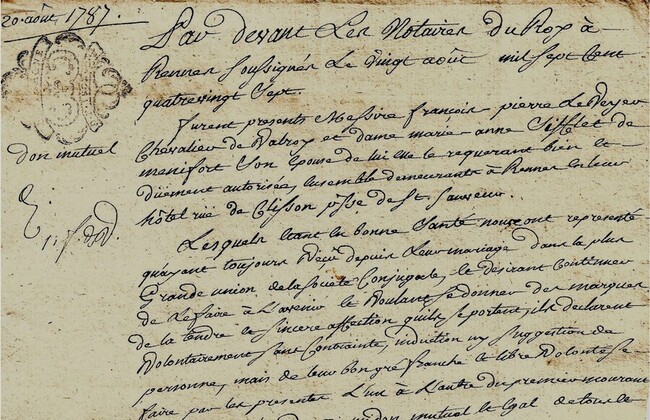 20. août 1787.
Par devant Les Notaires Du Roy à
Rennes soussignés Le vingt août mil sept cent
quatrevingt Sept.
don mutuel
furent presents Messire françois-pierre Le Voyer
Chevalier de Valroy et dame marie-anne de
menifort Son Epouse de lui elle le requerant bien et
duement autorisée, ensemble demeurants à Rennes en leur
hôtel rüe de Clisson psse. de St. Sauveur.
Lesquels Etant en bonne Santé nous ont representé
qu'ayant toujours Vécu depuis Leur mariage dans la plus
Grande union de la Societé Conjugale, et desirant Continuer
de Le faire à L'avenir et Voulant Se donner des marques
de la tendre et sincere affection qu'ils se portent, ils declarent
Volontairement sans Contrainte, induction ny Suggestion de
personne, mais de leur bon gré franche et libre Volonté se
faire par les presentes L'un à L'autre du premier mourant
don mutuel et Egal de tous le